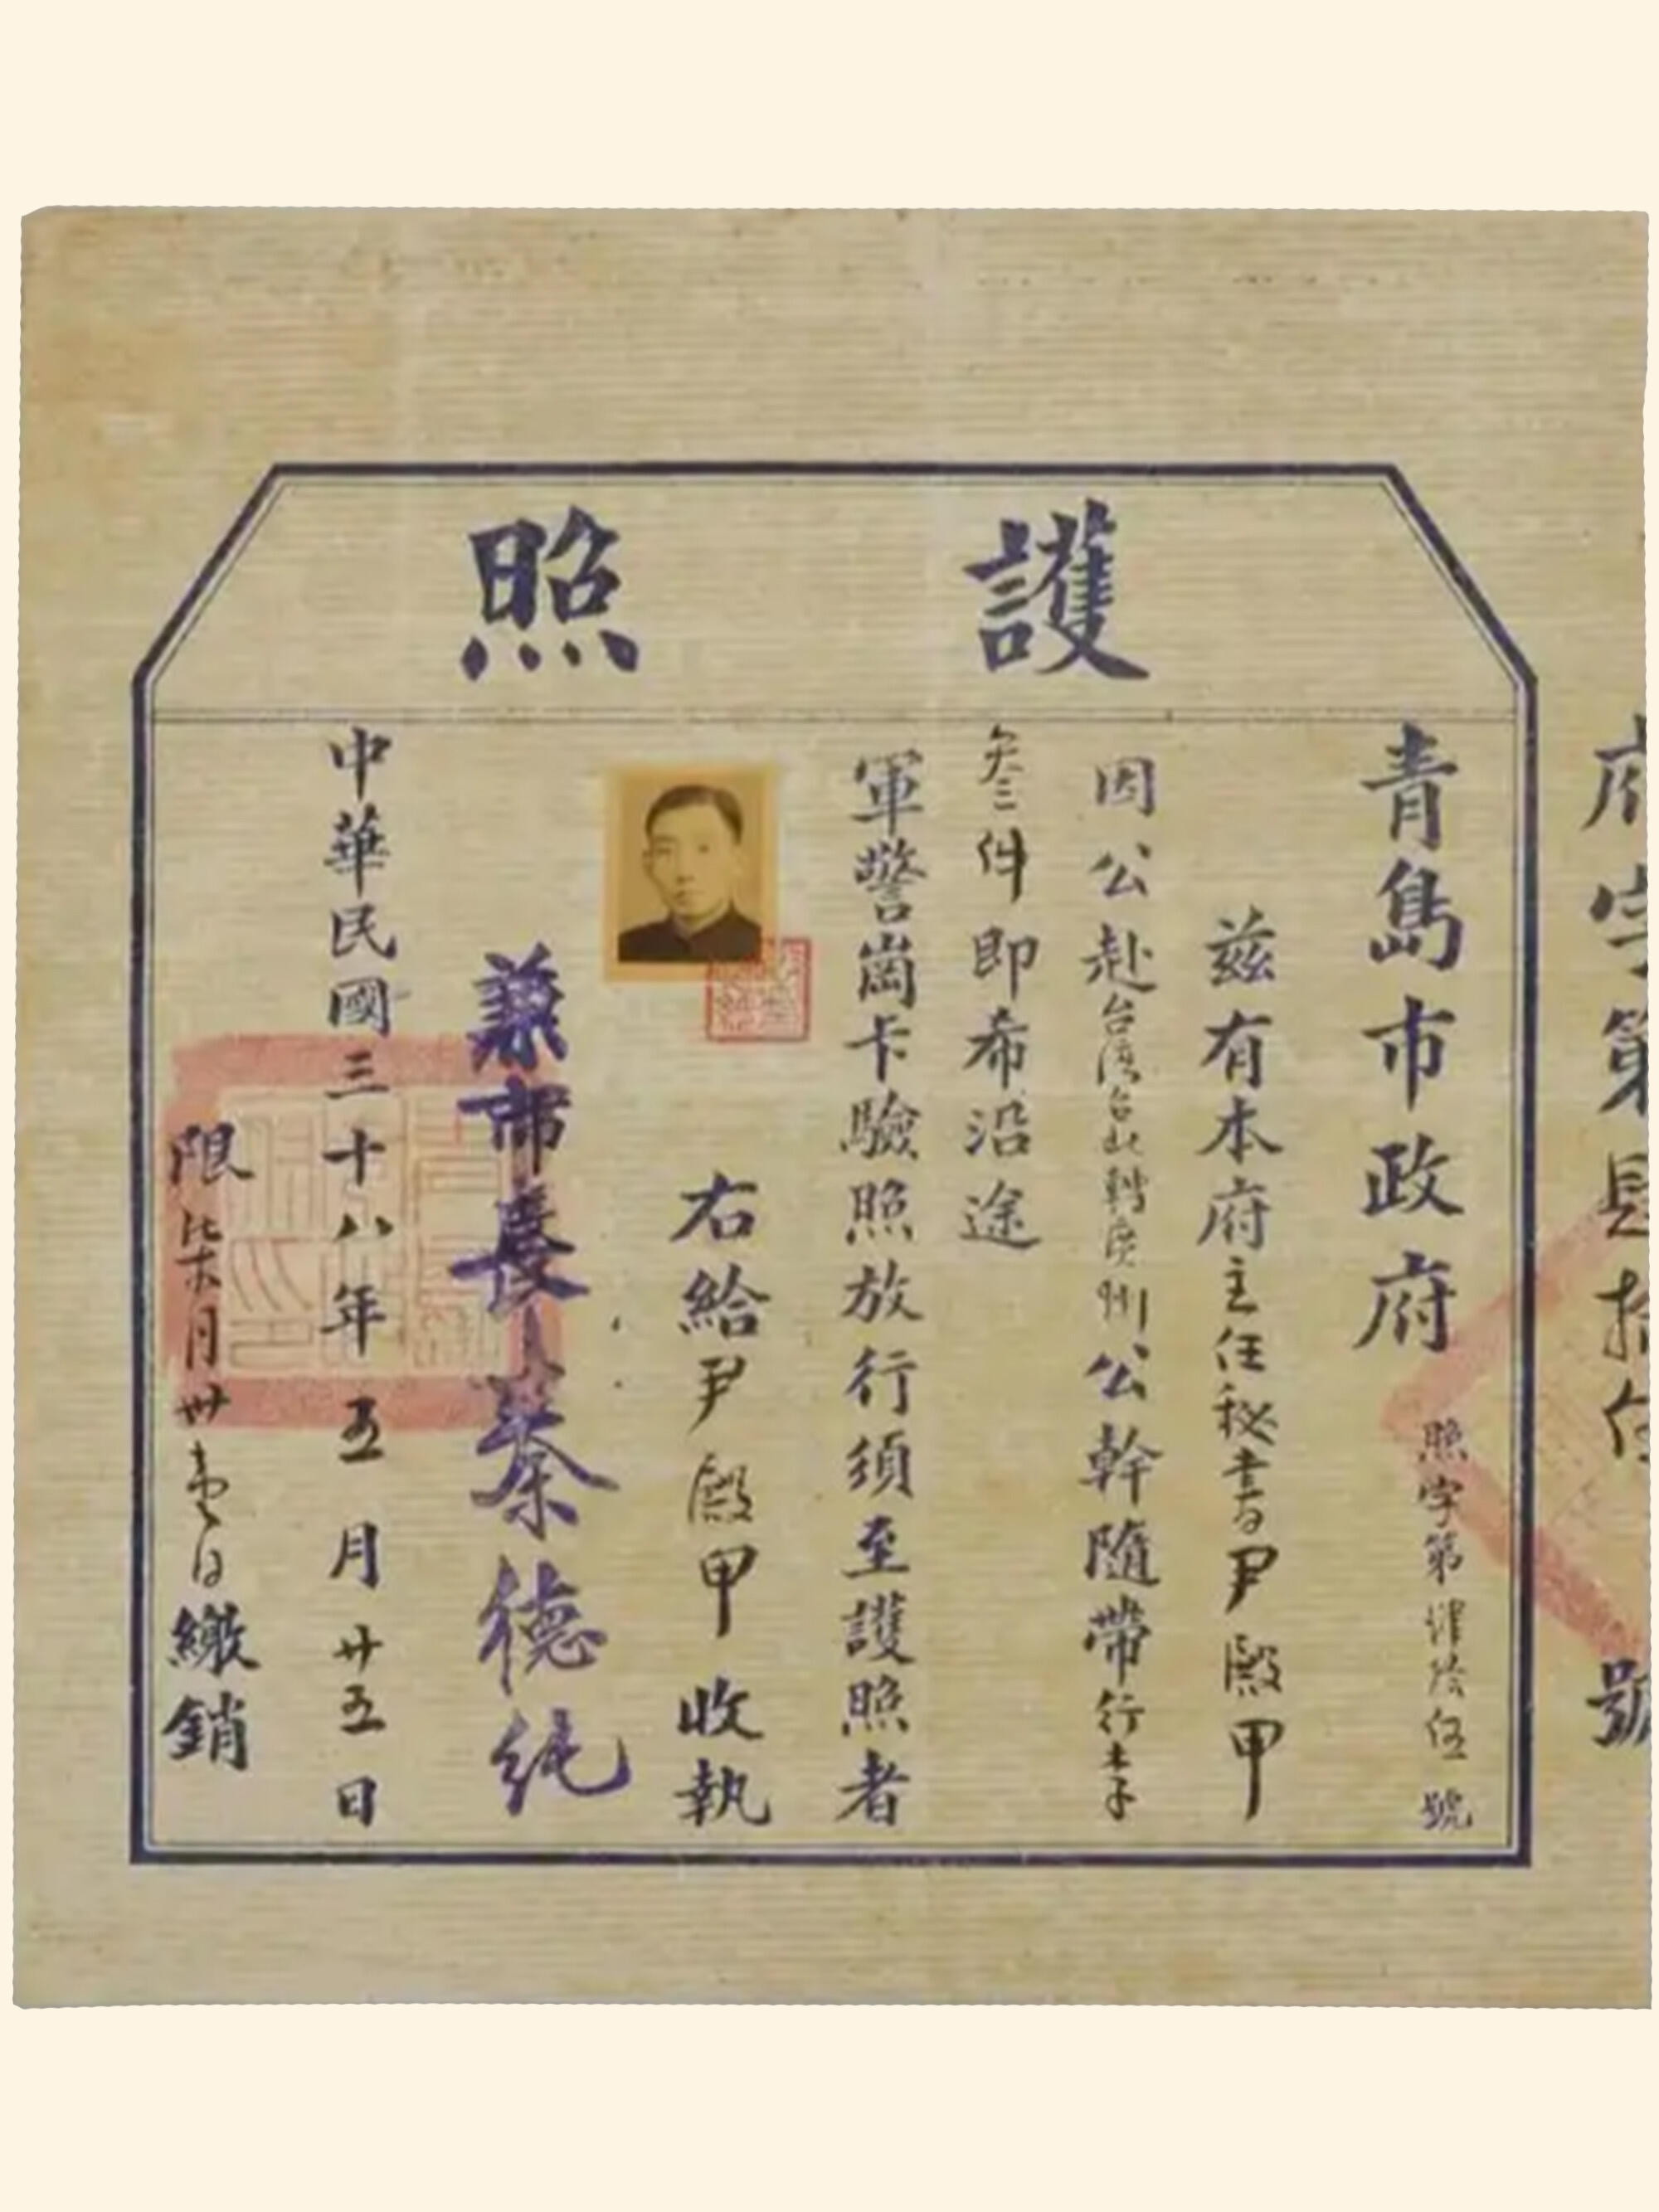 護照
青島市政府
照字第肆拾伍號
茲有本府主任秘書尹殿甲
因公赴台湾台北轉廣州公幹隨帶行李
叁件即希沿途
軍警崗卡驗照放行須至護照者
右給尹殿甲收執
兼市長秦德純
中華民國三十八年五月廿五日
限柒月卅壹日繳銷